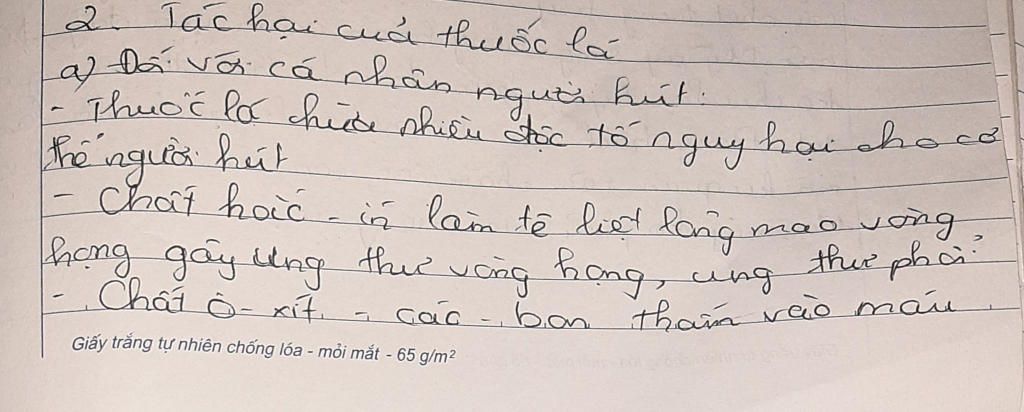 2. Tác hại của thuốc lá
a) Đối với cá nhân người hút:
- Thuốc lá chứa nhiều độc tố nguy hại cho cơ
thể người hút
- Chất hoić - ín làm tê liệt lông mao vòng
họng gây ung thư vòng họng, ung thư phổi.
- Chất ô-xít - các-bon thấm vào máu
Giấy trắng tự nhiên chống lóa - mỏi mắt - 65 g/m²